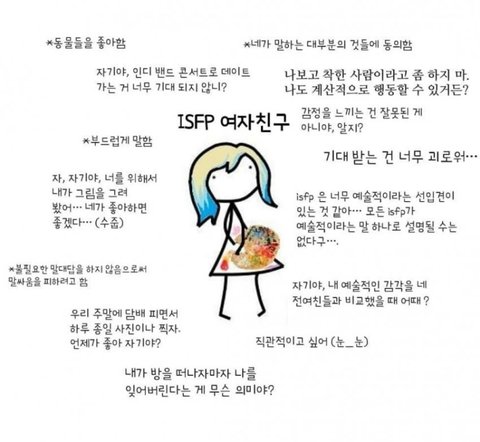 *동물들을 좋아함
*네가 말하는 대부분의 것들에 동의함
자기야, 인디 밴드 콘서트로 데이트
가는 거 너무 기대 되지 않니?
나보고 착한 사람이라고 좀 하지 마.
나도 계산적으로 행동할 수 있거든?
ISFP 여자친구
감정을 느끼는 건 잘못된 게
아니야, 알지?
*부드럽게 말함
기대 받는 건 너무 괴로워...
자, 자기야, 너를 위해서
내가 그림을 그려
봤어... 네가 좋아하면
좋겠다... (수줍)
isfp 은 너무 예술적이라는 선입견이
있는 것 같아... 모든 isfp가
예술적이라는 말 하나로 설명될 수는
없다구....
*불필요한 말대답을 하지 않음으로써
말싸움을 피하려고 함
자기야, 내 예술적인 감각을 네
전여친들과 비교했을 때 어때?
우리 주말에 담배 피면서
하루 종일 사진이나 찍자.
언제가 좋아 자기야?
직관적이고 싶어 (눈_눈)
내가 방을 떠나자마자 나를
잊어버린다는 게 무슨 의미야?